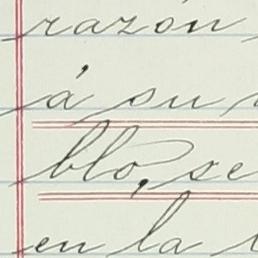 razón
á su
blo, se
en la